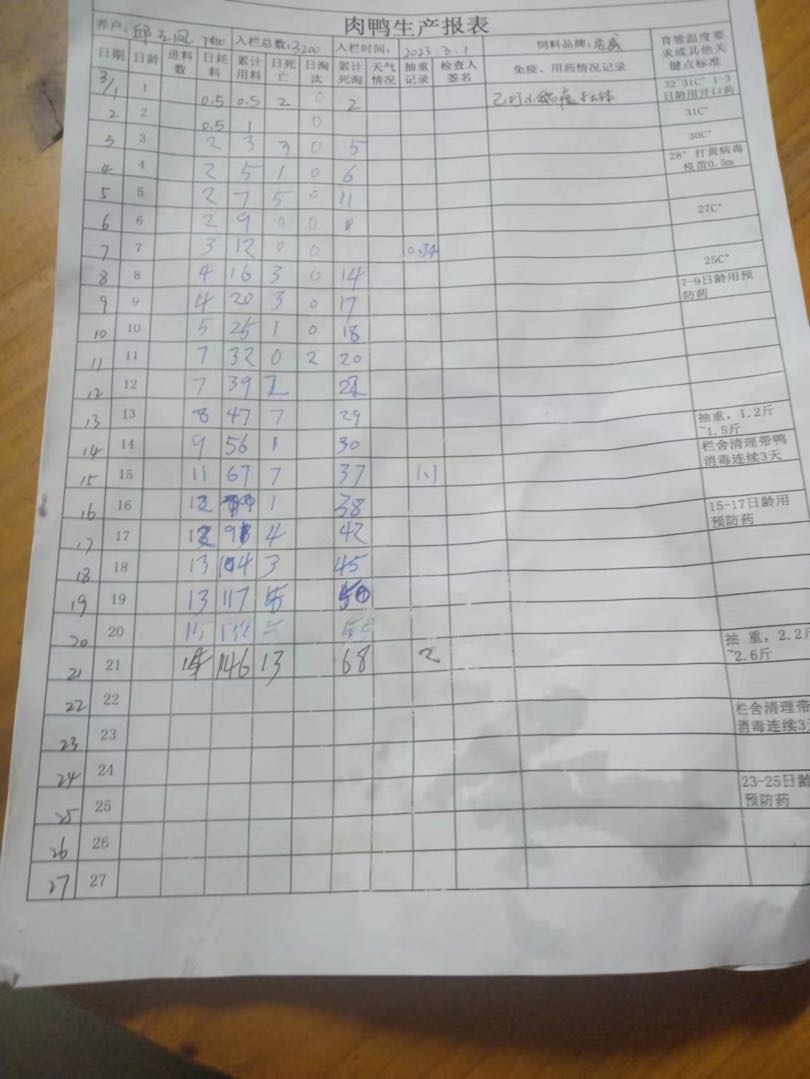 肉鸭生产报表
养户: 入栏总数:3200 入栏时间: 2023.3.1 饲料品牌: 育雏温度要求或其他关键点标准
日期 日龄 进料数 日耗料 累计用料 日死亡 日淘汰 累计死淘 天气情况 抽重记录 检查人签名 免疫、用药情况记录
3/1 1 0.5 0.5 2 0 2 32~31C° 1-3日龄用开口药
2 2 0.5 1 0 31C°
3 3 2 3 3 0 5 30C°
4 4 2 5 1 0 6 28° 打黄病毒疫苗0.5m
5 5 2 7 5 0 11
6 6 2 9 0 0 27C°
7 7 3 12 0 0 0.34
8 8 4 16 3 0 14 25C°
9 9 4 20 3 0 17 7-9日龄用预防药
10 10 5 25 1 0 18
11 11 7 32 0 2 20
12 12 7 39
13 13 8 47 7 29 抽重，1.2斤~1.5斤
14 14 9 56 1 30 栏舍清理带鸭消毒连续3天
15 15 11 67 7 37 1.1
16 16 12 1 38 15-17日龄用预防药
17 17 4 42
18 18 13 104 3 45
19 19 13 117
20 20 132 抽 重，2.2斤~2.6斤
21 21 146 13 68 2
22 22
23 23 栏舍清理带 消毒连续3
24 24
25 25 23-25日龄 预防药
26 26
27 27